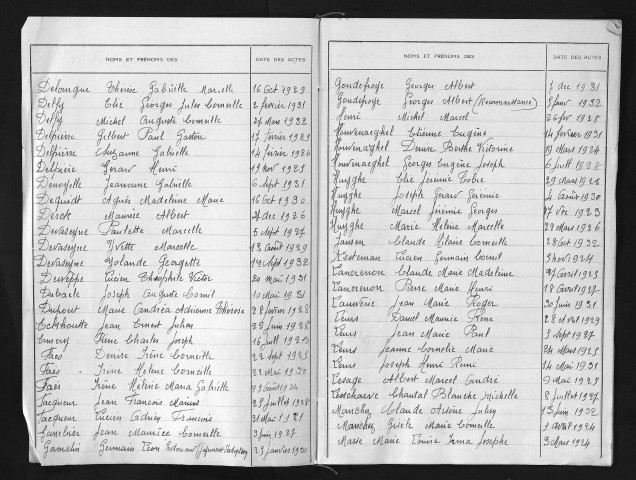 NOMS ET PRÉNOMS DES DATE DES ACTES
Delongue Thérèse Gabrielle Marcelle 16 Oct 1929
Delfy Elie Georges Jules Corneille 2 février 1931
Delfy Michel Auguste Corneille 27 Mars 1932
Delpierre Gilbert Paul Gaston 17 février
Delpierre Suzanne Gabrielle 14 février
Delpière Gérard Henri
Denoyelle Jeannine Gabrielle 6 Sept 1931
Dequidt Agnès Madeleine Marie 16 Oct 1930
Derck Maurice Albert dec 1926
Devaseyne Paulette Marcelle 5 Sept 1927
Devaseyne Yvette Marcelle 13 Août 1929
Devaseyne Yolande Georgette 19 Sept 1932
Deweppe Lucien Théophile Victor 20 mai 1931
Dubaele Joseph Auguste Cornil 10 Mai 1931
Dupont Marie Andréa Adrienne Thérèse 28 février 1928
Eeckhoutte Jean Ernest Julien 22 Juin 1928
Emery René Charles Joseph 16 Juill
Faes Denise Irène Corneille 22 Sept
Faes Irène Hélène Corneille 22 Mai 1930
Faes Irène Hélène Maria Gabrielle
Facqueur Jean François Marius 25 Juillet 1928
Facqueur Lucien François 31 Mai
Gamelin Jean Maurice Corneille 3 Juin 1927
Gamelin Germain Léon Edouard 25 Janvier 1930
NOMS ET PRÉNOMS DES DATE DES ACTES
Goudepoye Georges Albert 7 dec 1931
Goudepoye Georges Albert (Reconnaissance) 5 Janv 1932
Henri Michel Marcel 26 fev 1928
Houvenaeghel Etienne Eugène 14 février 1931
Houvenaeghel Denise Berthe Victorine 19 Mars 1924
Houvenaeghel Georges Eugène Joseph 6 Juill 1928
Huyghe Elie Jérémie 29 Mars
Huyghe Joseph Gérard Jérémie 4 Août 1930
Huyghe Marcel Jérémie Georges 27 Dec 1923
Huyghe Marie Hélène Marcelle 22 Mars 1926
Jansen Claude Hilaire Corneille 28 Oct 1932
Kesteman Lucien Germain Cornil 3 Nov 1924
Lancrenon Claude Marie Madeleine 27 Avril
Lancrenon Pierre Marie Henri 18 Avril 1927
Lauwerie Jean Marie Roger 30 Juin 1931
Leurs Daniel Maurice René 22 Avril 1929
Leurs Jean Marie Paul 3 Sept 1927
Leurs Jeanne Cornélie Marie 24 Mars
Leurs Joseph Henri Rémi 14 Mai 1931
Lesage Albert Marcel André 9 Mai
Lesschaeve Chantal Blanche Michelle 8 Juillet 1927
Manchez Claude Arsène Julien 5 Juin 1932
Manchez Gisèle Marie Corneille 2 Avril 1924
Masse Marie Louise Irma Josephe 3 Mars 1924